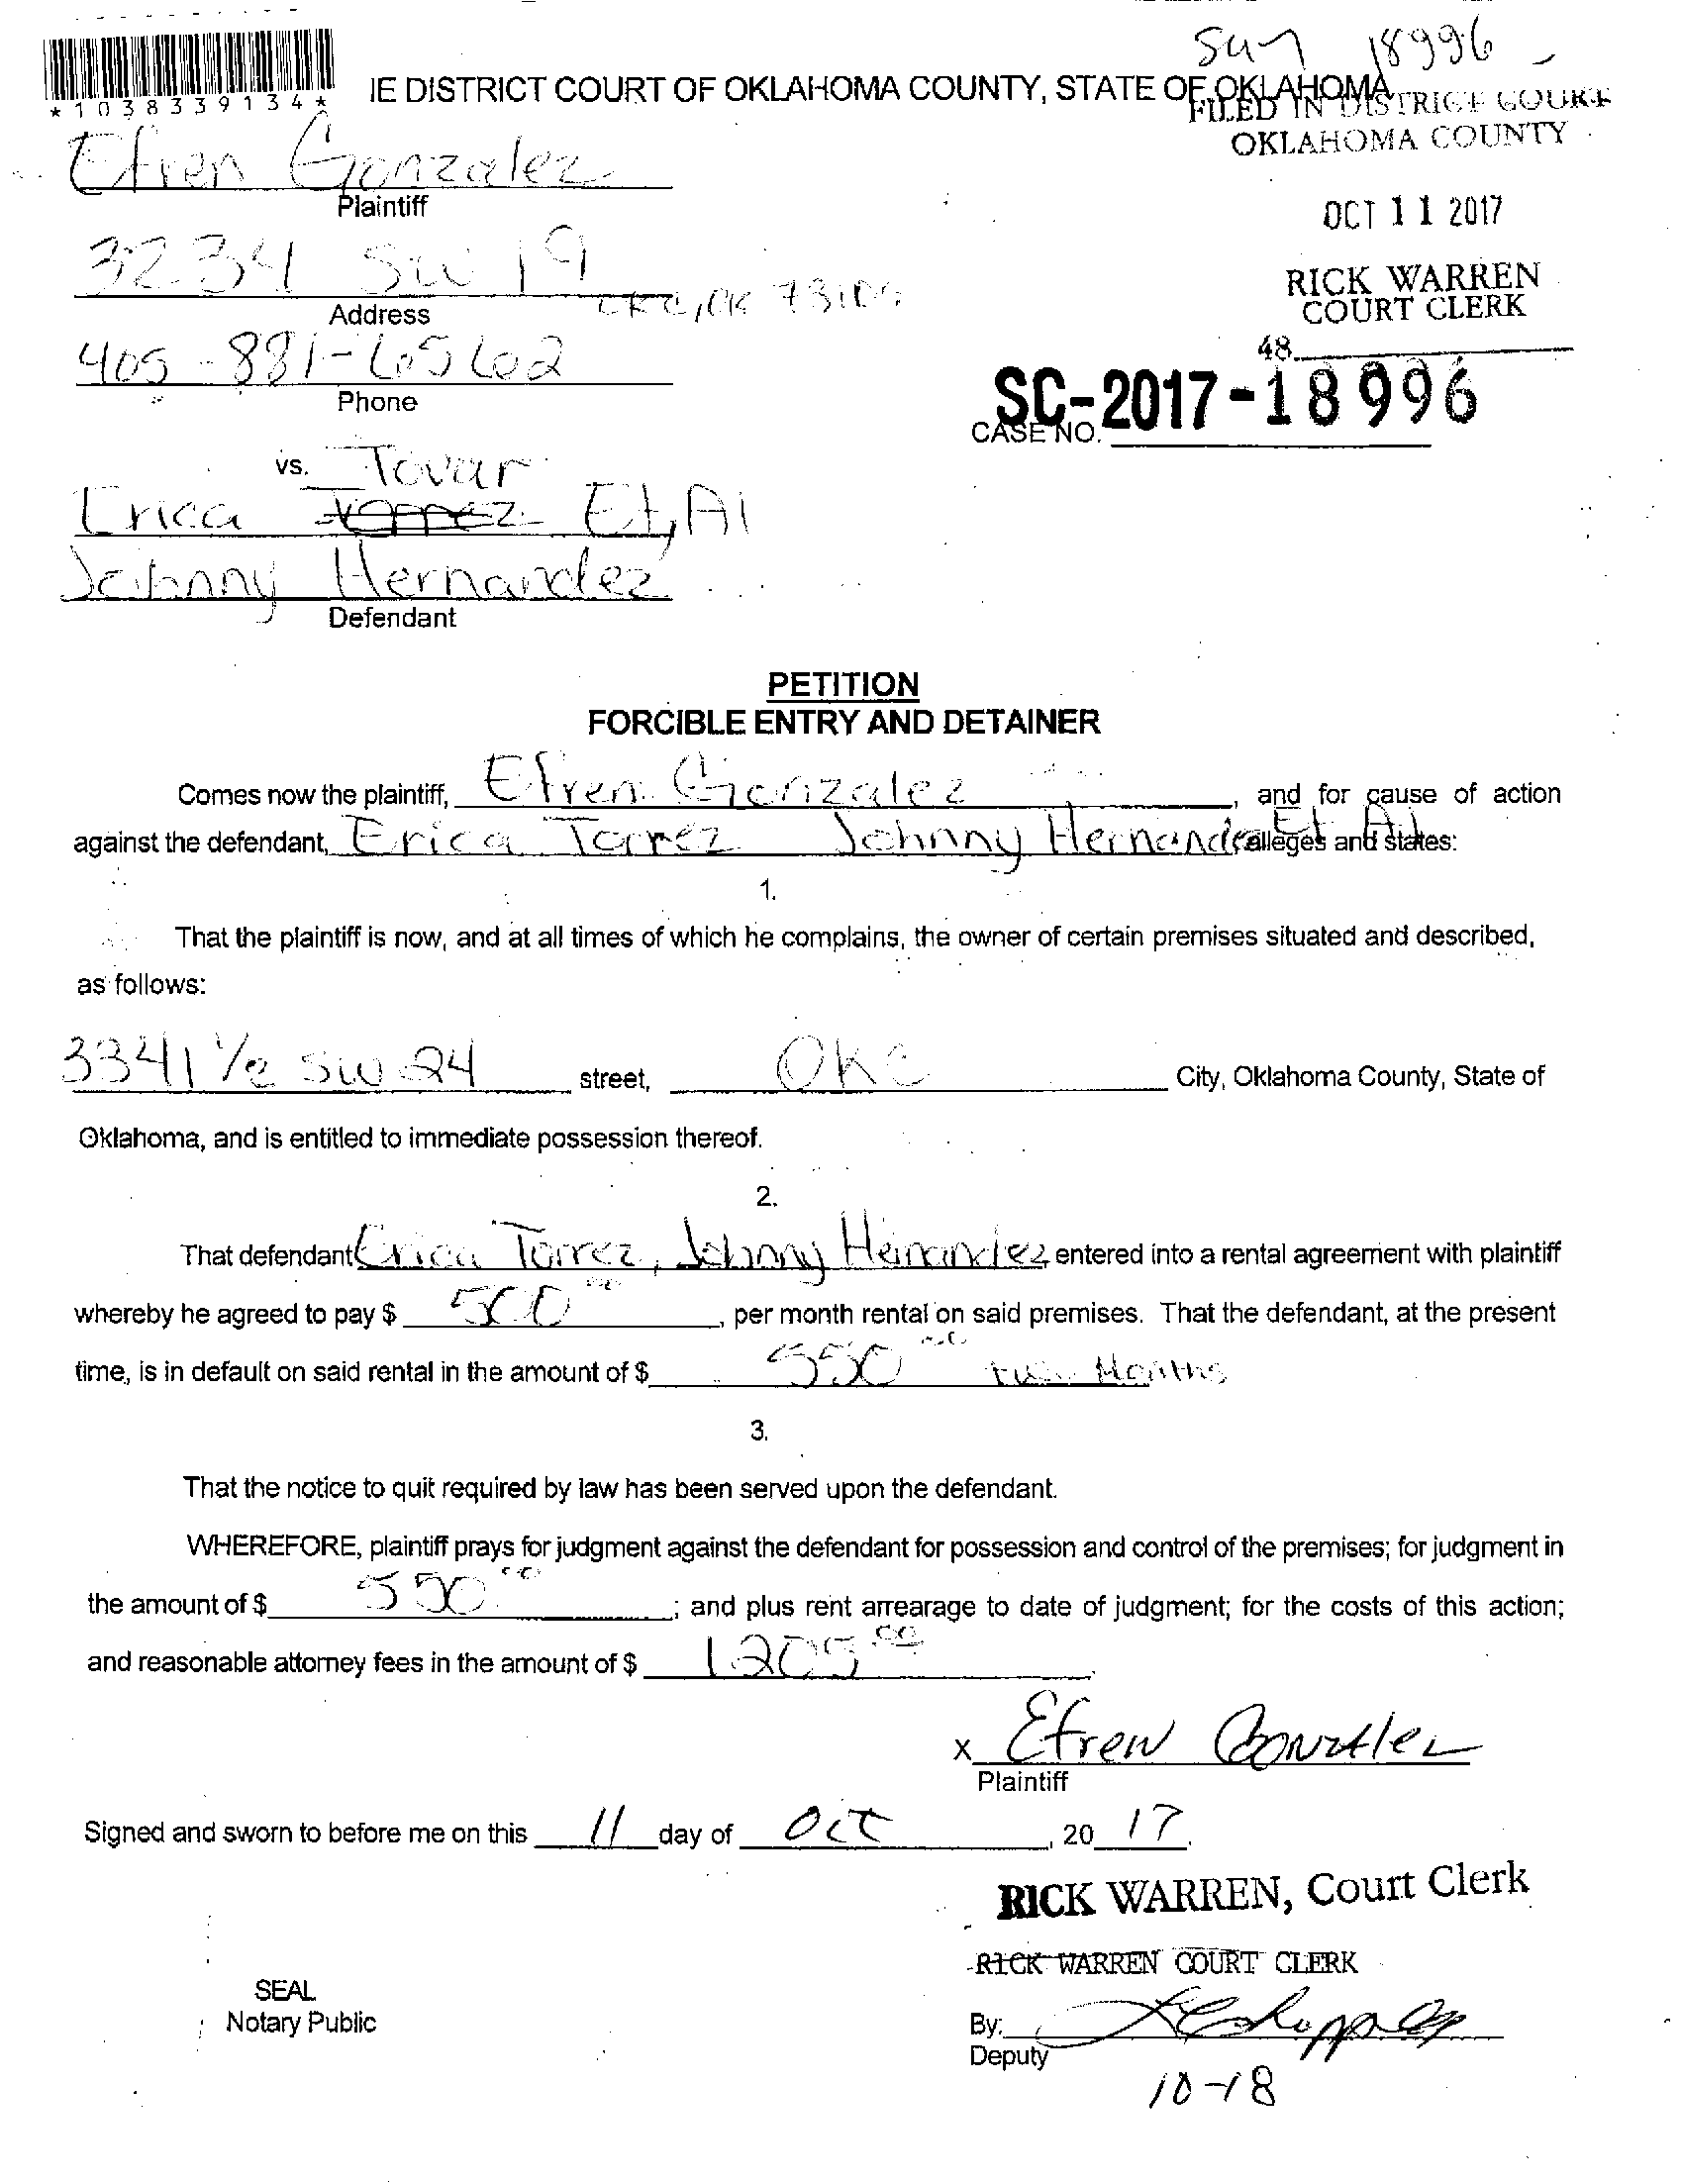 Su7 18996 -
*1038339134*
IE DISTRICT COURT OF OKLAHOMA COUNTY, STATE OF OKLAHOMA
FILED IN DISTRICT COURT
OKLAHOMA COUNTY
Efren Gonzalez
Plaintiff
OCT 11 2017
3234 SW 19
OKC, OK
Address
RICK WARREN
COURT CLERK
405-881-6562
Phone
48
SC-2017-18996
CASE NO.
vs. Tovar
Erica Torrez Et, Al
Johnny Hernandez
Defendant
PETITION
FORCIBLE ENTRY AND DETAINER
Comes now the plaintiff, Efren Gonzalez, and for cause of action
against the defendant, Erica Torrez Johnny Hernandez Et Al alleges and states:
1.
That the plaintiff is now, and at all times of which he complains, the owner of certain premises situated and described,
as follows:
3341 1/2 SW 24 street, OKC City, Oklahoma County, State of
Oklahoma, and is entitled to immediate possession thereof.
2.
That defendant Erica Torrez, Johnny Hernandez entered into a rental agreement with plaintiff
whereby he agreed to pay $ 500 00, per month rental on said premises. That the defendant, at the present
time, is in default on said rental in the amount of $ 550 00 two Months
3.
That the notice to quit required by law has been served upon the defendant.
WHEREFORE, plaintiff prays for judgment against the defendant for possession and control of the premises; for judgment in
the amount of $ 550 00; and plus rent arrearage to date of judgment; for the costs of this action;
and reasonable attorney fees in the amount of $ 1205 00
x Efren Gonzalez
Plaintiff
Signed and sworn to before me on this 11 day of Oct, 2017.
RICK WARREN, Court Clerk
RICK WARREN COURT CLERK
SEAL
Notary Public
By:
Deputy
10-18